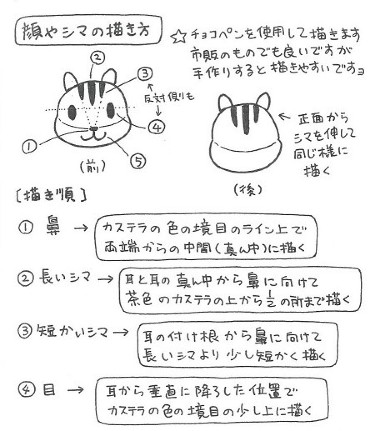 顔やシマの描き方
☆チョコペンを使用して描きます
市販のものでも良いですが
手作りすると描きやすいですョ
②
③
反対側も
④
①
⑤
(前)
← 正面から
シマを伸して
同じ様に
描く
(後)
[描き順]
① 鼻 → カステラの色の境目のライン上で
両端からの中間(真ん中)に描く
② 長いシマ → 耳と耳の真ん中から鼻に向けて
茶色のカステラの上から1/2の所まで描く
③ 短かいシマ → 耳の付け根から鼻に向けて
長いシマより少し短かく描く
④ 目 → 耳から垂直に降ろした位置で
カステラの色の境目の少し上に描く